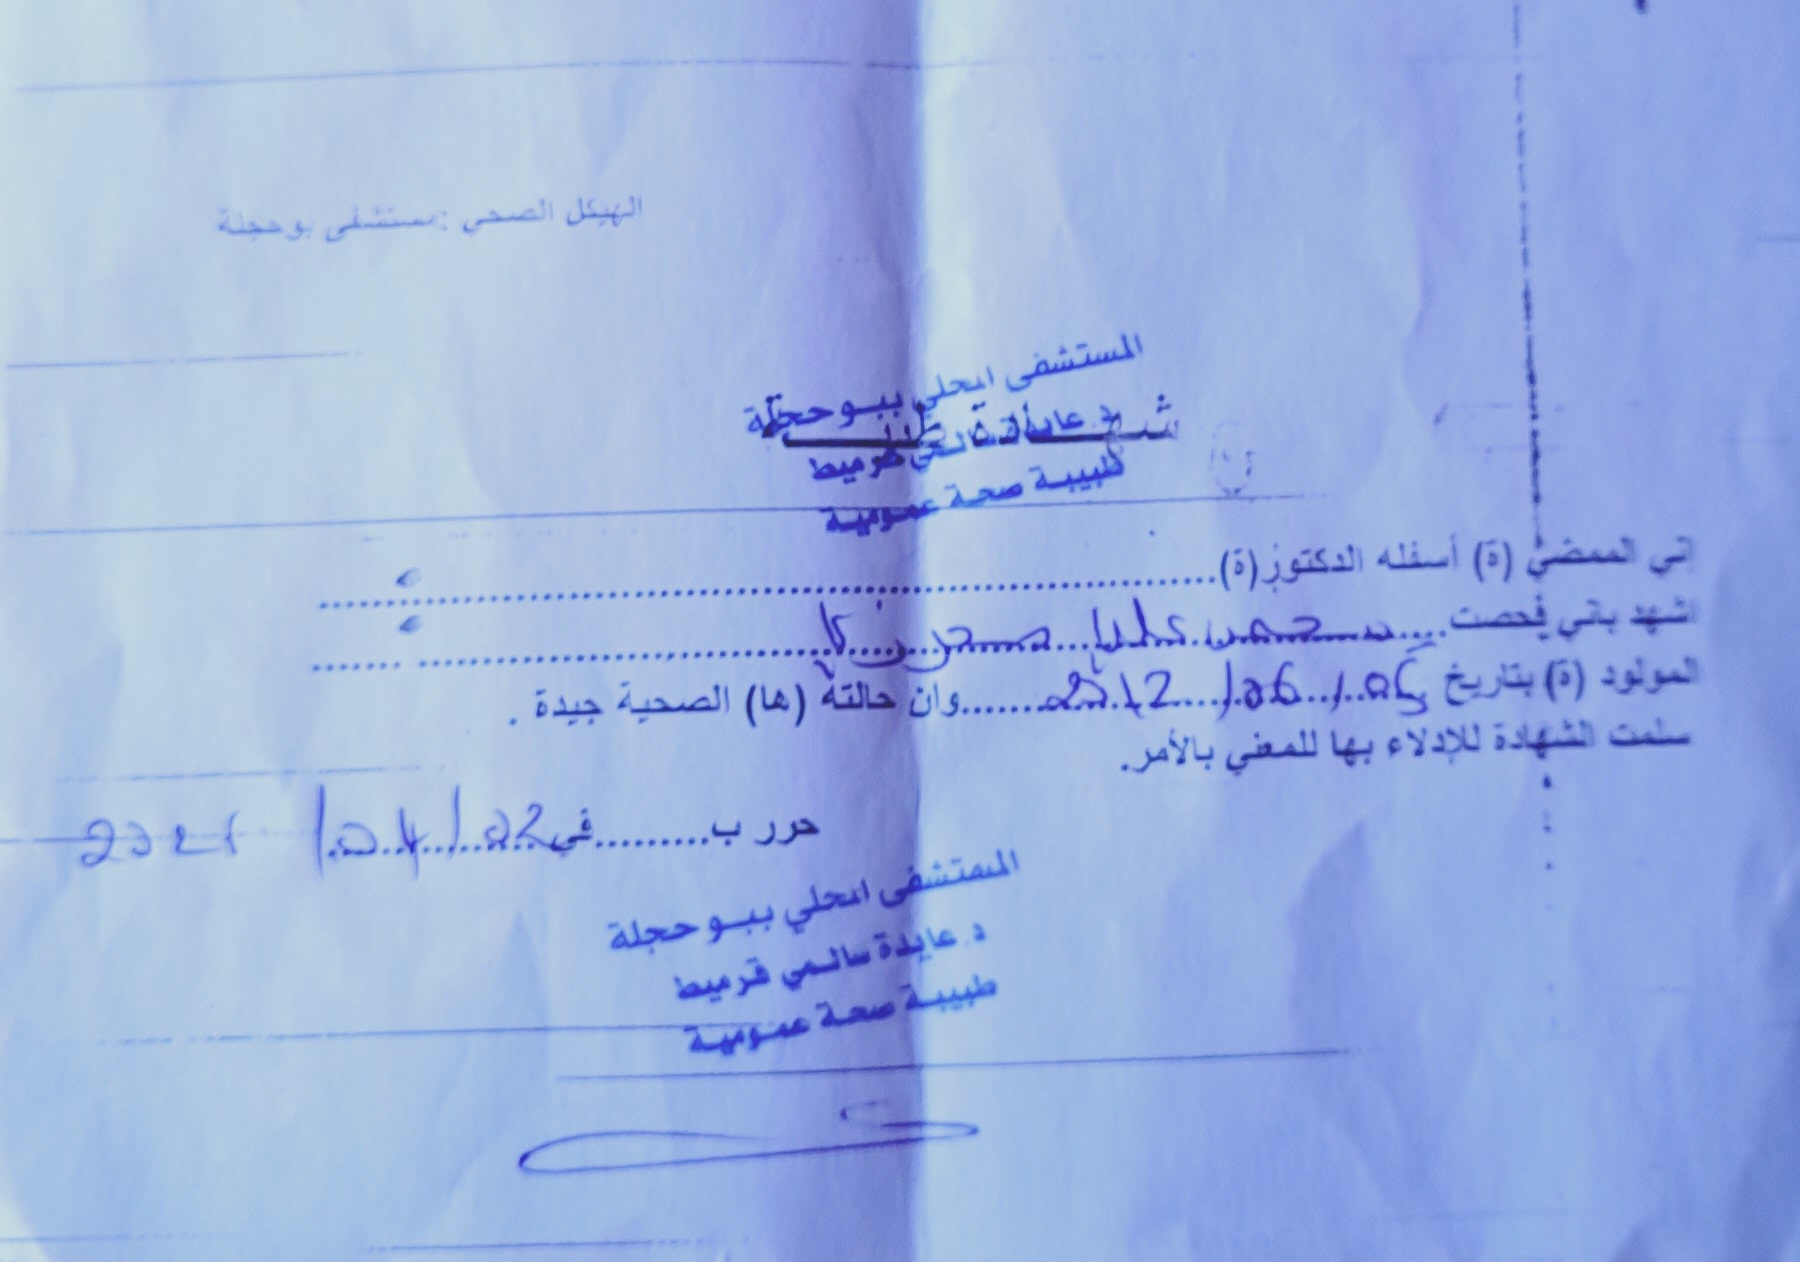 الهيكل الصحي :مستشفى بوحجلة
المستشفى المحلي ببوحجلة
شهادة طبية
د. عايدة سالمي قرميط
طبيبة صحة عمومية
اني الممضي (ة) أسفله الدكتور(ة)
اشهد باني فحصت
المولود (ة) بتاريخ 06/06/2012 وان حالته (ها) الصحية جيدة .
سلمت الشهادة للإدلاء بها للمعني بالأمر.
حرر ب.........في 02/04/
المستشفى المحلي ببوحجلة
د. عايدة سالمي قرميط
طبيبة صحة عمومية